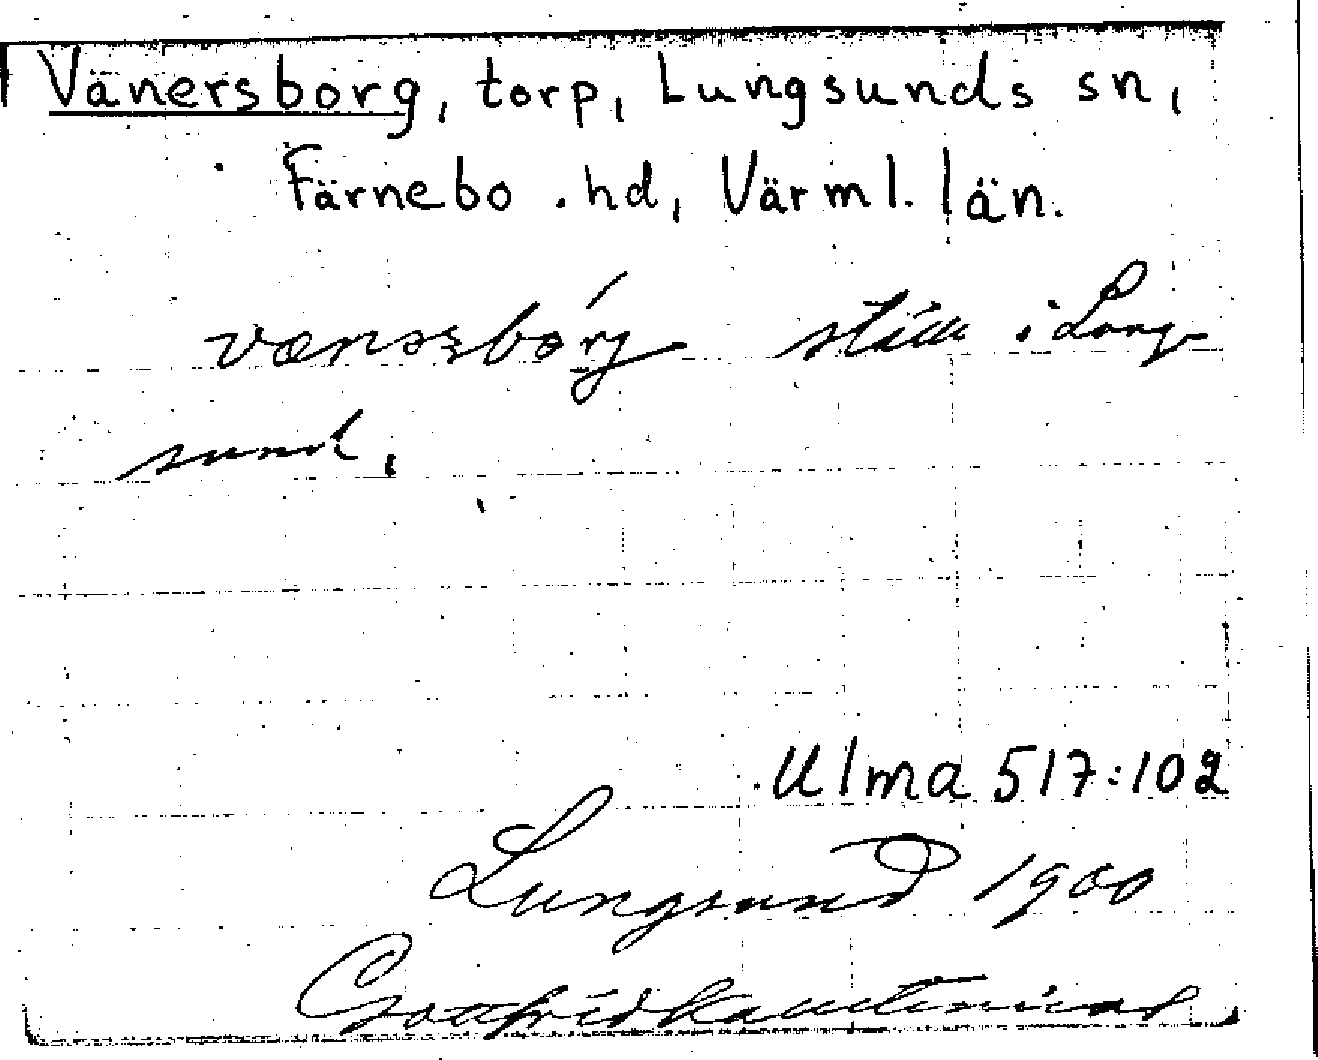 Vänersborg, torp, Lungsunds sn,
Färnebo hd, Värml. län.
ställe i Lung-
sund.
Ulma 517:102
Lungsund 1900
Gottfrid Kallstenius